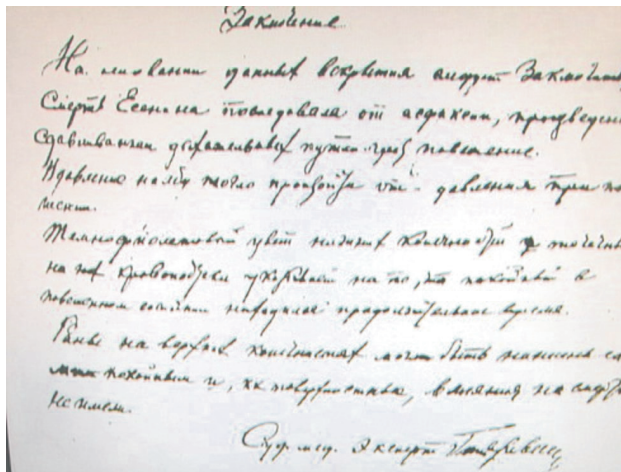 Заключение
На основании данных вскрытия следует заключить,
Смерть Есенина последовала от асфиксии, произведен
сдавливанием дыхательных путей через повешение.
Вдавление на лбу могло произойти от давления при по
шении.
Темнофиолетовый цвет нижних конечностей точечные
на них кровоподтеки указывают на то, что покойный в
повешенном состоянии находился продолжительное время.
Раны на верхних конечностях могли быть нанесены са
покойным и, как поверхностные, влияния на смерть
не имели.
Суд. мед. Эксперт